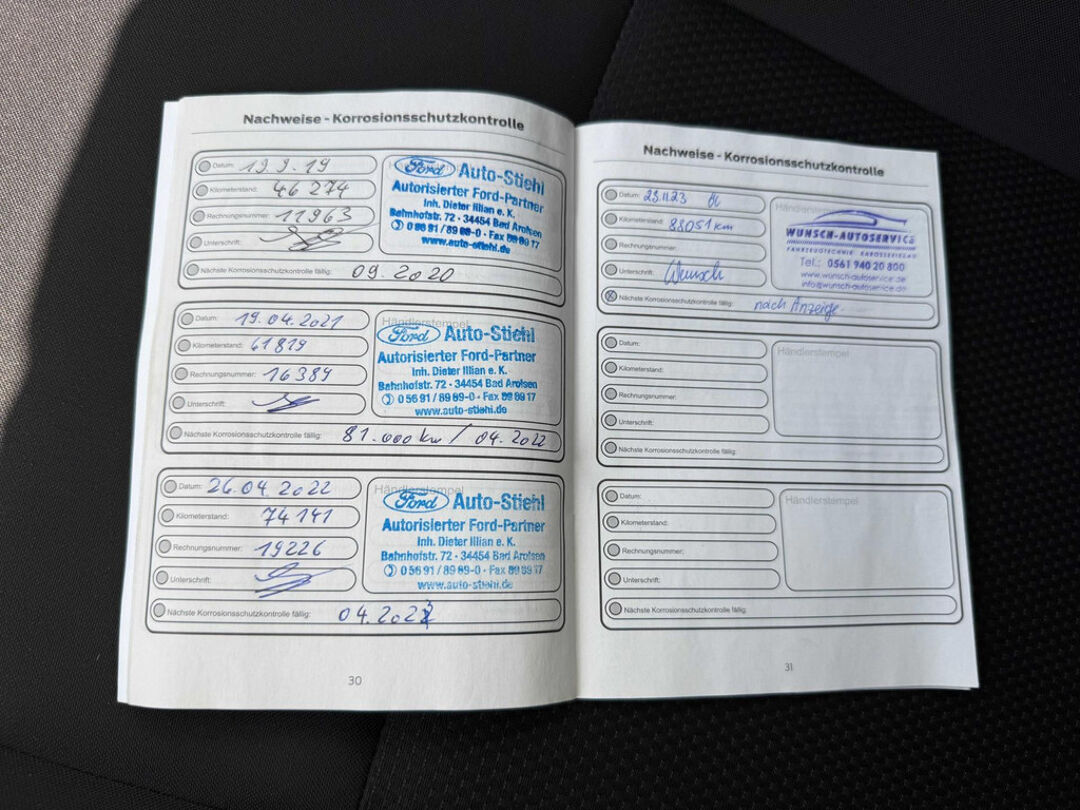 Nachweise - Korrosionsschutzkontrolle
Datum: 19.9.19
Kilometerstand: 46 274
Rechnungsnummer: 11963
Unterschrift:
Ford Auto-Stiehl
Autorisierter Ford-Partner
Inh. Dieter Illian e. K.
Bahnhofstr. 72 · 34454 Bad Arolsen
0 56 91 / 89 89-0 · Fax 89 89 17
www.auto-stiehl.de
Nächste Korrosionsschutzkontrolle fällig: 09.2020
Datum: 19.04.2021
Kilometerstand: 61819
Rechnungsnummer: 16389
Unterschrift:
Händlerstempel
Ford Auto-Stiehl
Autorisierter Ford-Partner
Inh. Dieter Illian e. K.
Bahnhofstr. 72 · 34454 Bad Arolsen
0 56 91 / 89 89-0 · Fax 89 89 17
www.auto-stiehl.de
Nächste Korrosionsschutzkontrolle fällig: 81.000 km / 04.2022
Datum: 26.04.2022
Kilometerstand: 74 141
Rechnungsnummer: 19226
Unterschrift:
Händlerstempel
Ford Auto-Stiehl
Autorisierter Ford-Partner
Inh. Dieter Illian e. K.
Bahnhofstr. 72 · 34454 Bad Arolsen
0 56 91 / 89 89-0 · Fax 89 89 17
www.auto-stiehl.de
Nächste Korrosionsschutzkontrolle fällig: 04.2023
30
Nachweise - Korrosionsschutzkontrolle
Datum: 23.11.23
Kilometerstand: 88051 km
Rechnungsnummer:
Unterschrift: Wunsch
WUNSCH-AUTOSERVICE
FAHRZEUGTECHNIK
Tel.: 0561 940 20 800
www.wunsch-autoservice.de
info@wunsch-autoservice.de
Nächste Korrosionsschutzkontrolle fällig: nach Anzeige.
Datum:
Kilometerstand:
Rechnungsnummer:
Unterschrift:
Händlerstempel
Nächste Korrosionsschutzkontrolle fällig:
Datum:
Kilometerstand:
Rechnungsnummer:
Unterschrift:
Händlerstempel
Nächste Korrosionsschutzkontrolle fällig:
31